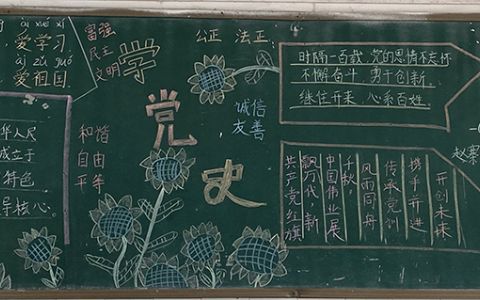 ài xué xí
爱学习
ài zǔ guó
爱祖国
华人民
成立于
特色
导核心。
富强
民主
文明
和谐
自由
平等
学
党
史
公正 法正
诚信
友善
时隔一百载,党的恩情不忘怀
不懈奋斗,勇于创新。
继往开来,心系百姓。
开创未来
携手并进
传承党创
风雨同舟
千秋,
中国伟业展
飘万代,新
共产党红旗
赵